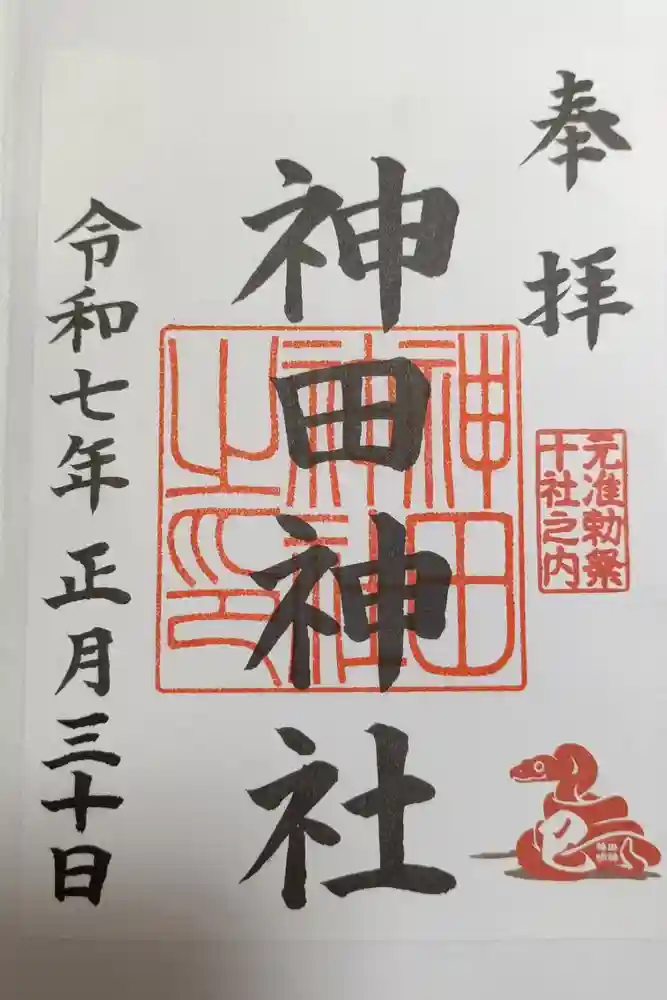 奉拝
元准勅祭
十社之内
神田神社
神田
神社
之印
巳
令和七年正月三十日